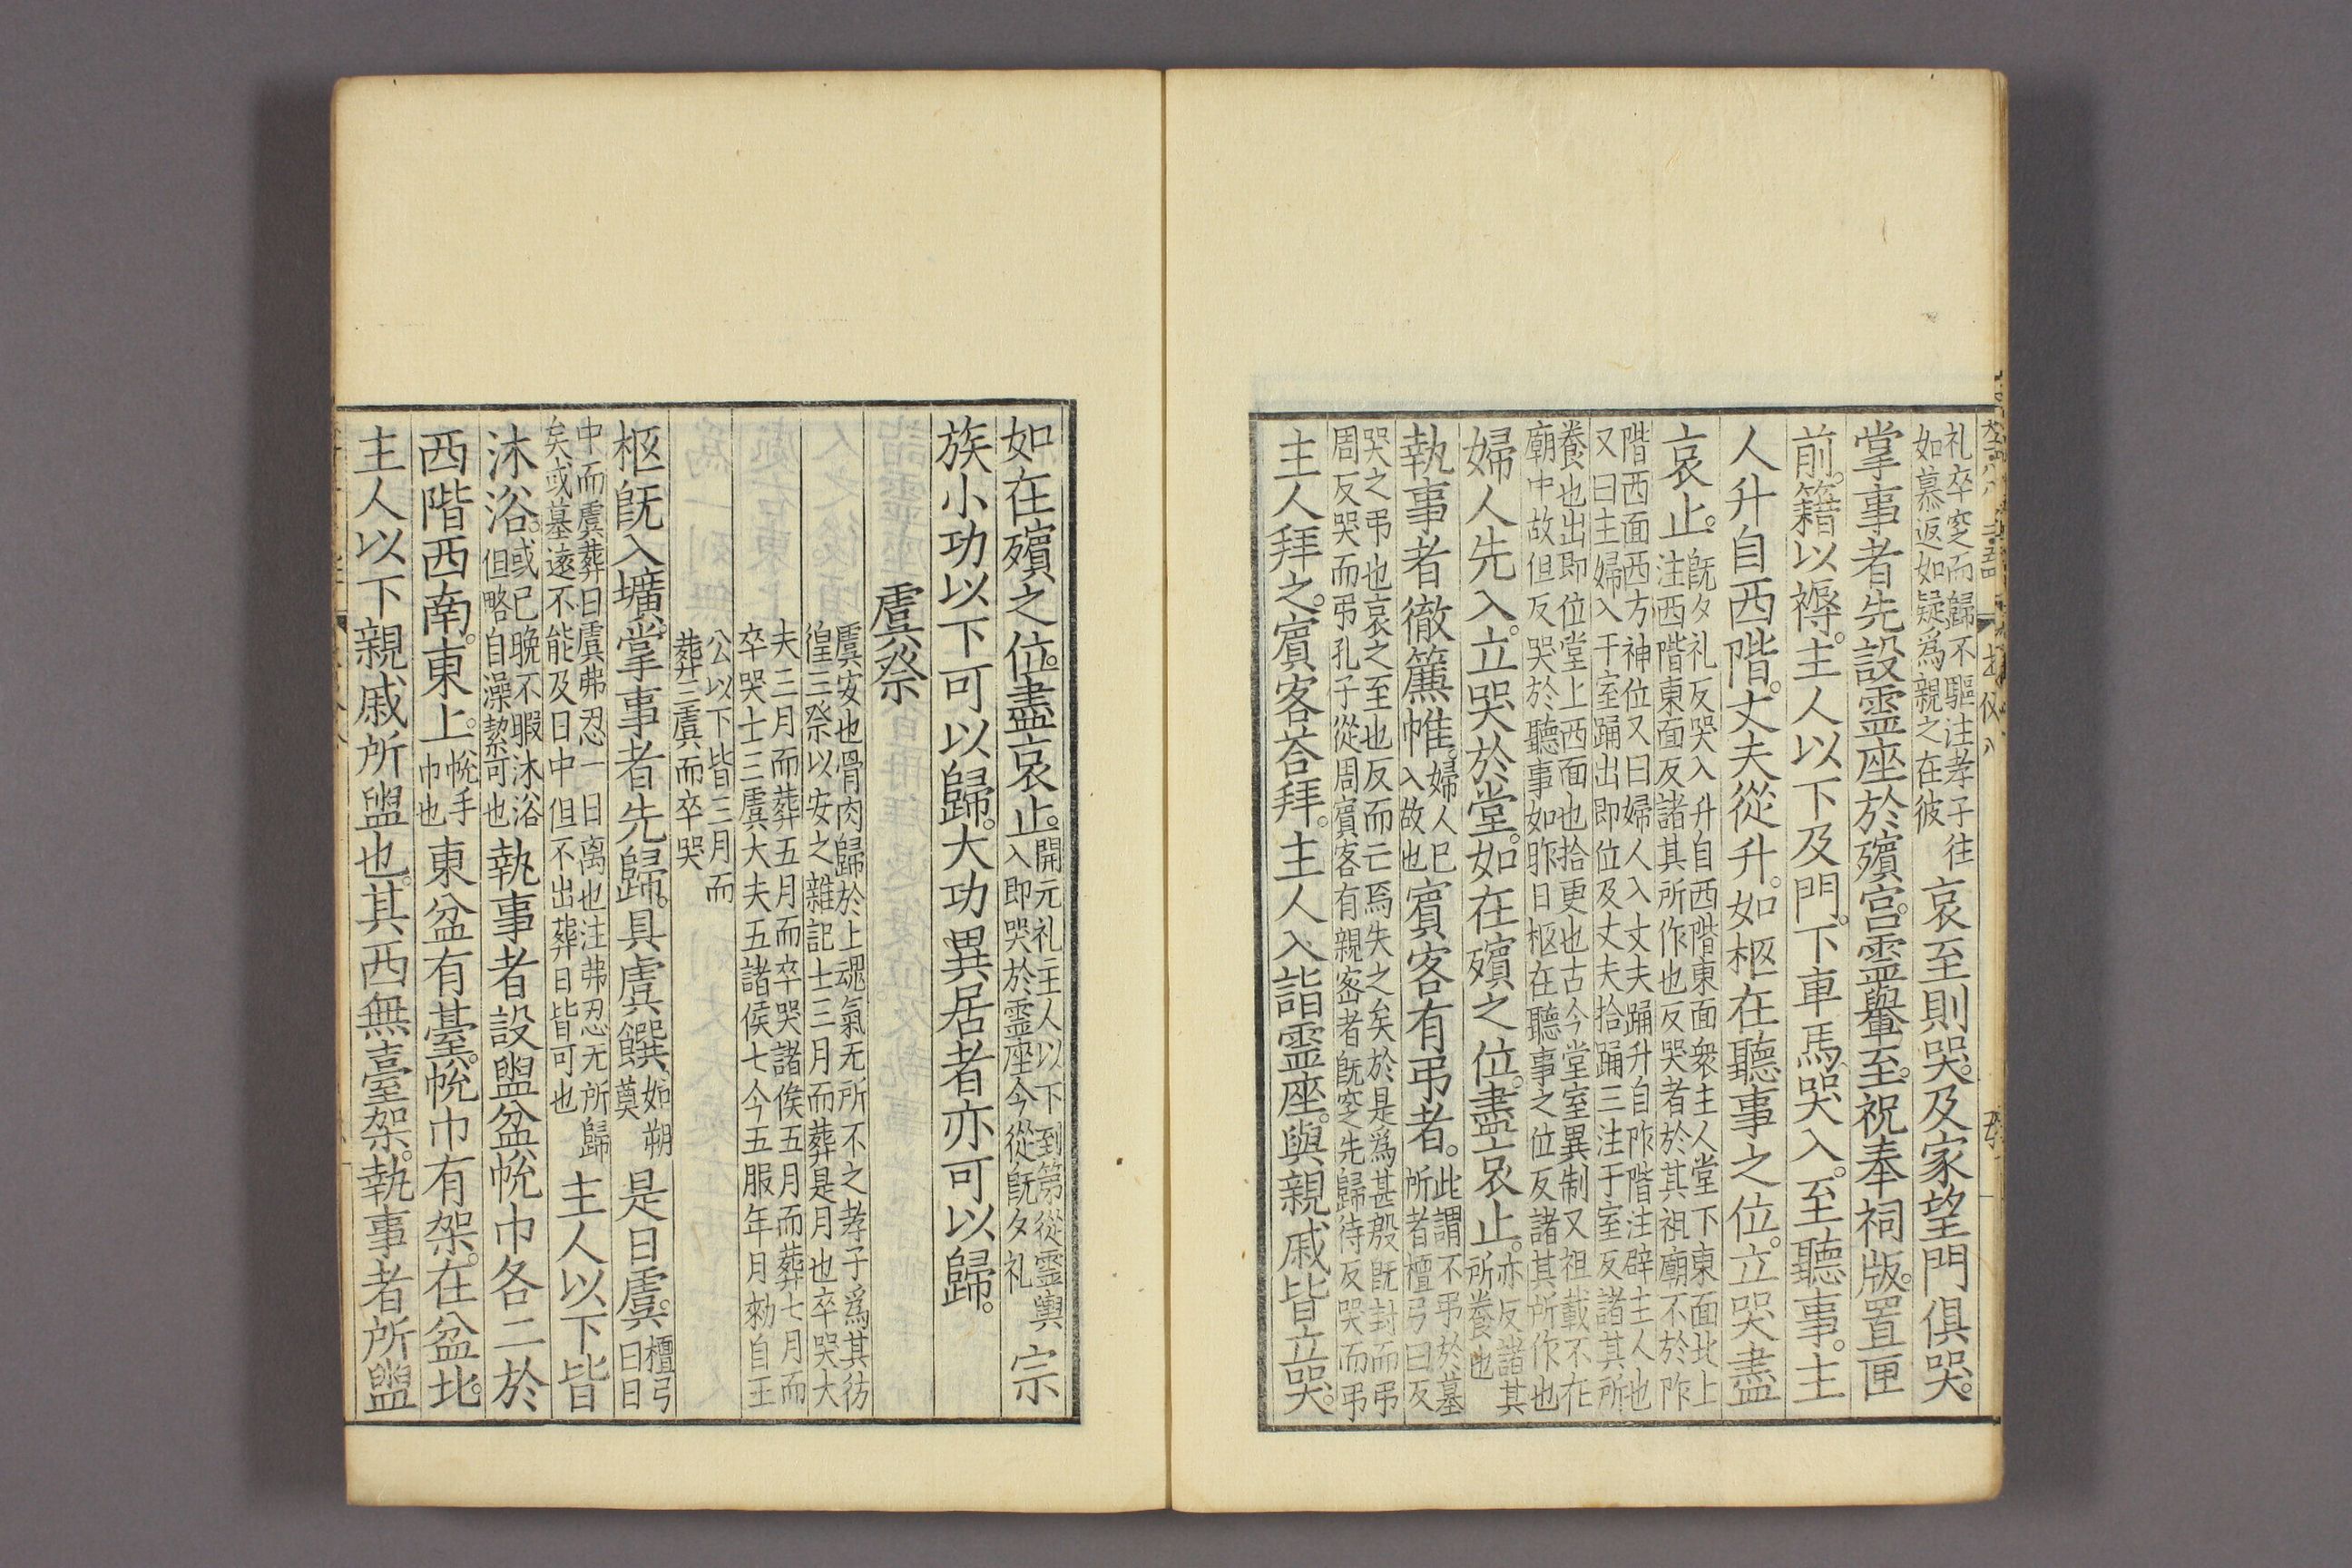 礼卒窆而歸不驅注孝子往
如慕返如疑爲親之在彼
哀至則哭。及家望門俱哭。
掌事者先設靈座於殯宫。靈轝至。祝奉祠版。置匣
前。籍以褥。主人以下及門。下車馬哭入。至聽事。主
人升自西階。丈夫從升。如柩在聽事之位。立哭盡
哀止。
既夕礼反哭入升自西階東面衆主人堂下東面北上
注西階東面反諸其所作也反哭者於其祖廟不於阼
階西面西方神位又曰婦人入丈夫踊升自阼階注辟主人也
又曰主婦入于室踊出即位及丈夫拾踊三注于室反諸其所
養也出即位堂上西面也拾更也古今堂室異制又祖載不在
廟中故但反哭於聽事如昨日柩在聽事之位反諸其所作也
婦人先入。立哭於堂。如在殯之位。盡哀止。
亦反諸其
所養也
執事者徹簾帷。
婦人已
入故也
賓客有弔者。
此謂不弔於墓
所者檀弓曰反
哭之弔也哀之至也反而亡焉失之矣於是爲甚殷既封而弔
周反哭而弔孔子從周賓客有親密者既窆先歸待反哭而弔
主人拜之。賓客荅拜。主人入詣靈座。與親戚皆立哭。
如在殯之位。盡哀止。
開元礼主人以下到第從靈輿
入即哭於靈座今從既夕礼
宗
族小功以下可以歸。大功異居者亦可以歸。
虞祭
虞安也骨肉歸於上魂氣无所不之孝子爲其彷
徨三祭以安之雜記士三月而葬是月也卒哭大
夫三月而葬五月而卒哭諸侯五月而葬七月而
卒哭士三虞大夫五諸侯七今五服年月勑自王
公以下皆三月而
葬三虞而卒哭
柩既入壙。掌事者先歸。具虞饌
如朔
奠
是日虞。
檀弓
曰日
中而虞葬日虞弗忍一日离也注弗忍无所歸
矣或墓遠不能及日中但不出葬日皆可也
主人以下皆
沐浴。
或已晚不暇沐浴
但略自澡潔可也
執事者設盥盆帨巾各二於
西階西南。東上。
帨手
巾也
東盆有臺。帨巾有架。在盆北。
主人以下親戚所盥也。其西無臺架。執事者所盥